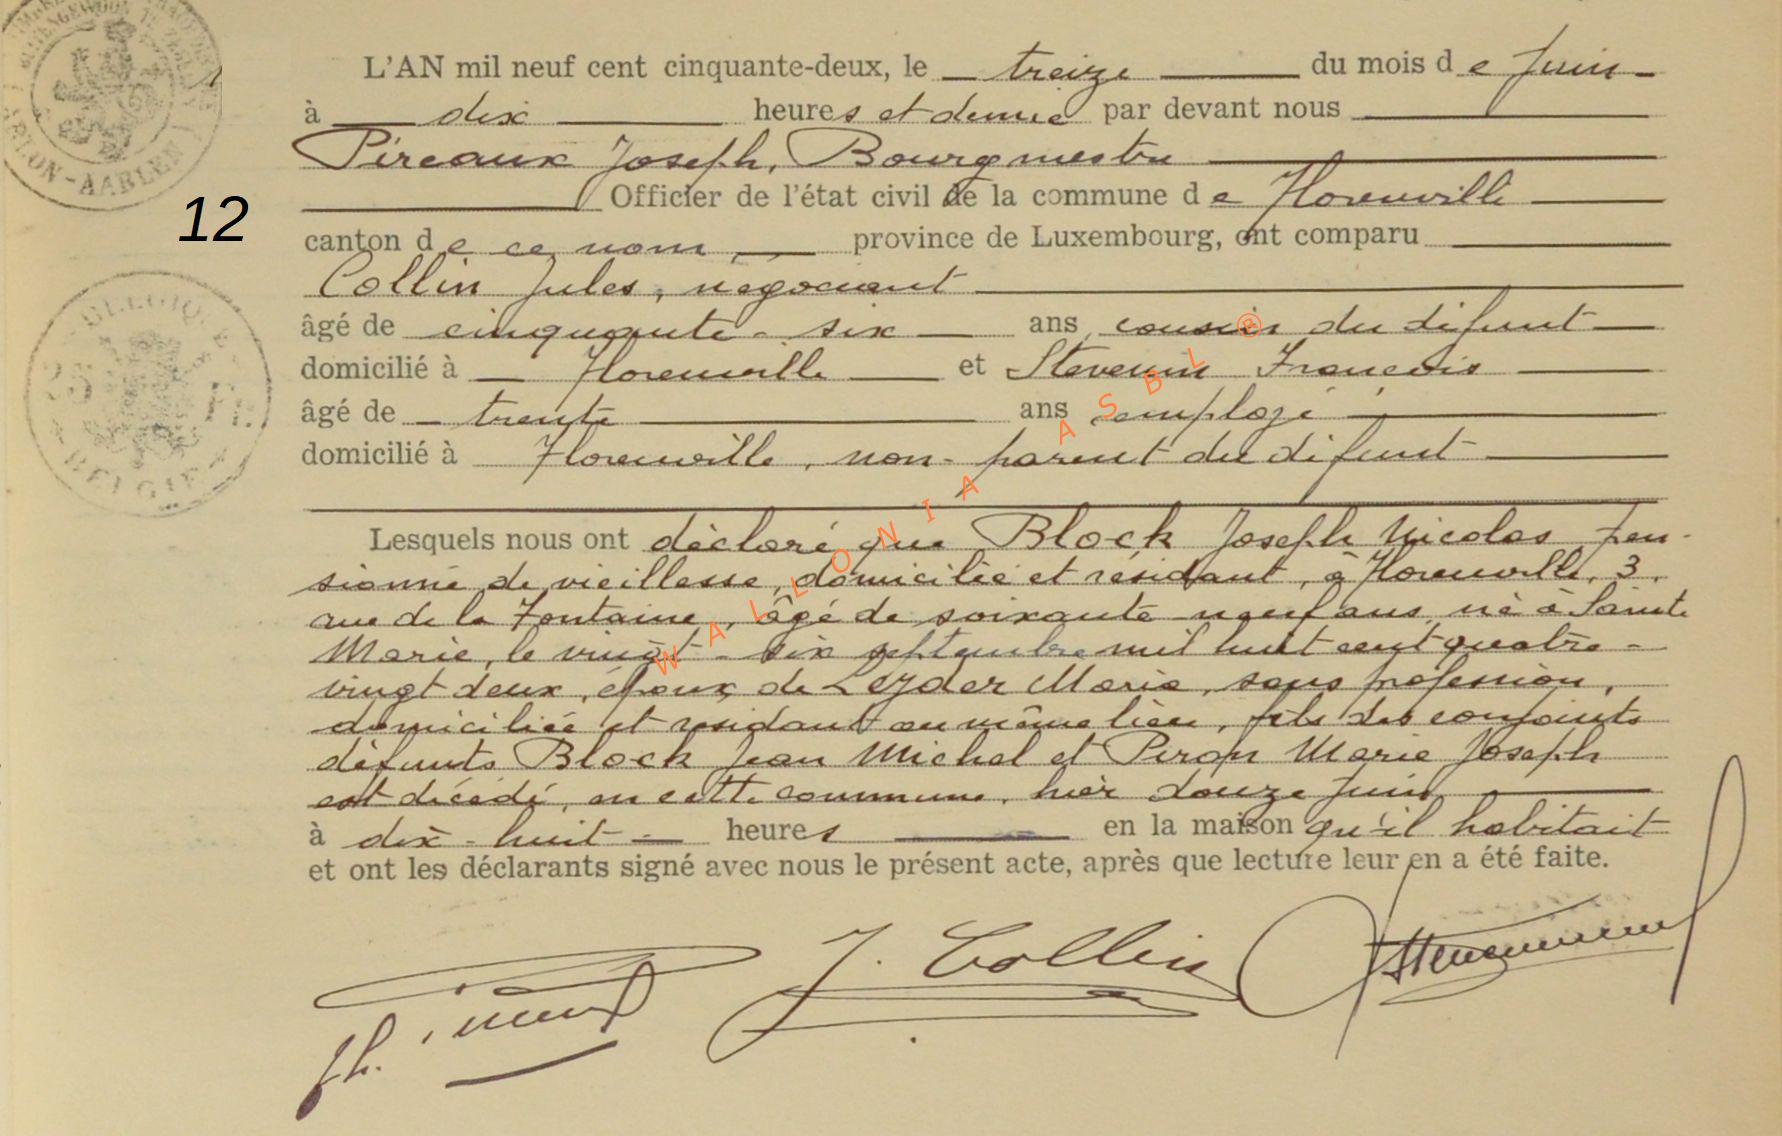 L'AN mil neuf cent cinquante-deux, le treize du mois de Juin
à dix heures et demie par devant nous
Pireaux Joseph, Bourgmestre
Officier de l'état civil de la commune de Florenville
12
canton de ce nom, province de Luxembourg, ont comparu
Collin Jules, négociant
âgé de cinquante-six ans, cousin du défunt
domicilié à Florenville et Stevenin François
âgé de trente ans employé
domicilié à Florenville, non-parent du défunt
Lesquels nous ont déclaré que Block Joseph Nicolas pen-
sionné de vieillesse, domicilié et résidant, à Florenville, 3,
rue de la Fontaine, âgé de soixante neuf ans, né à Sainte
Marie, le vingt-six septembre mil huit cent quatre-
vingt deux, époux de Lezder Maria, sans profession,
domiciliée et résidant au même lieu, fils des conjoints
défunts Block Jean Michel et Piron Marie Joseph
est décédé, en cette commune, hier douze Juin
à dix-huit heures en la maison qu'il habitait
et ont les déclarants signé avec nous le présent acte, après que lecture leur en a été faite.
J. Collin
WALLONIA ASBL ®
BELGIQUE
BELGIE
ARLON-AARLEN